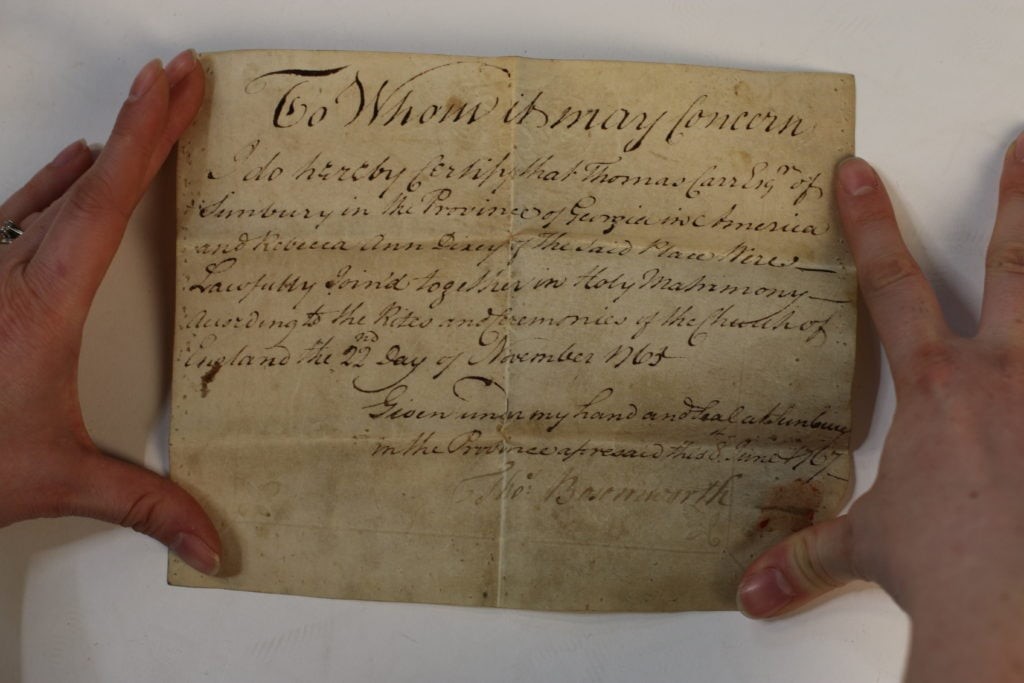 To Whom it may Concern
I do hereby Certify that Thomas Carr Esqr. of
Sunbury in the Province of Georgia in America
and Rebecca Ann Dixey of the said Place Were
Lawfully Join'd together in Holy Matrimony
According to the Rites and Ceremonies of the Church of
England the 22nd Day of November 1765
Given under my hand and Seal at Sunbury
in the Province aforesaid this 8th June 1767
Thos. Bosomworth